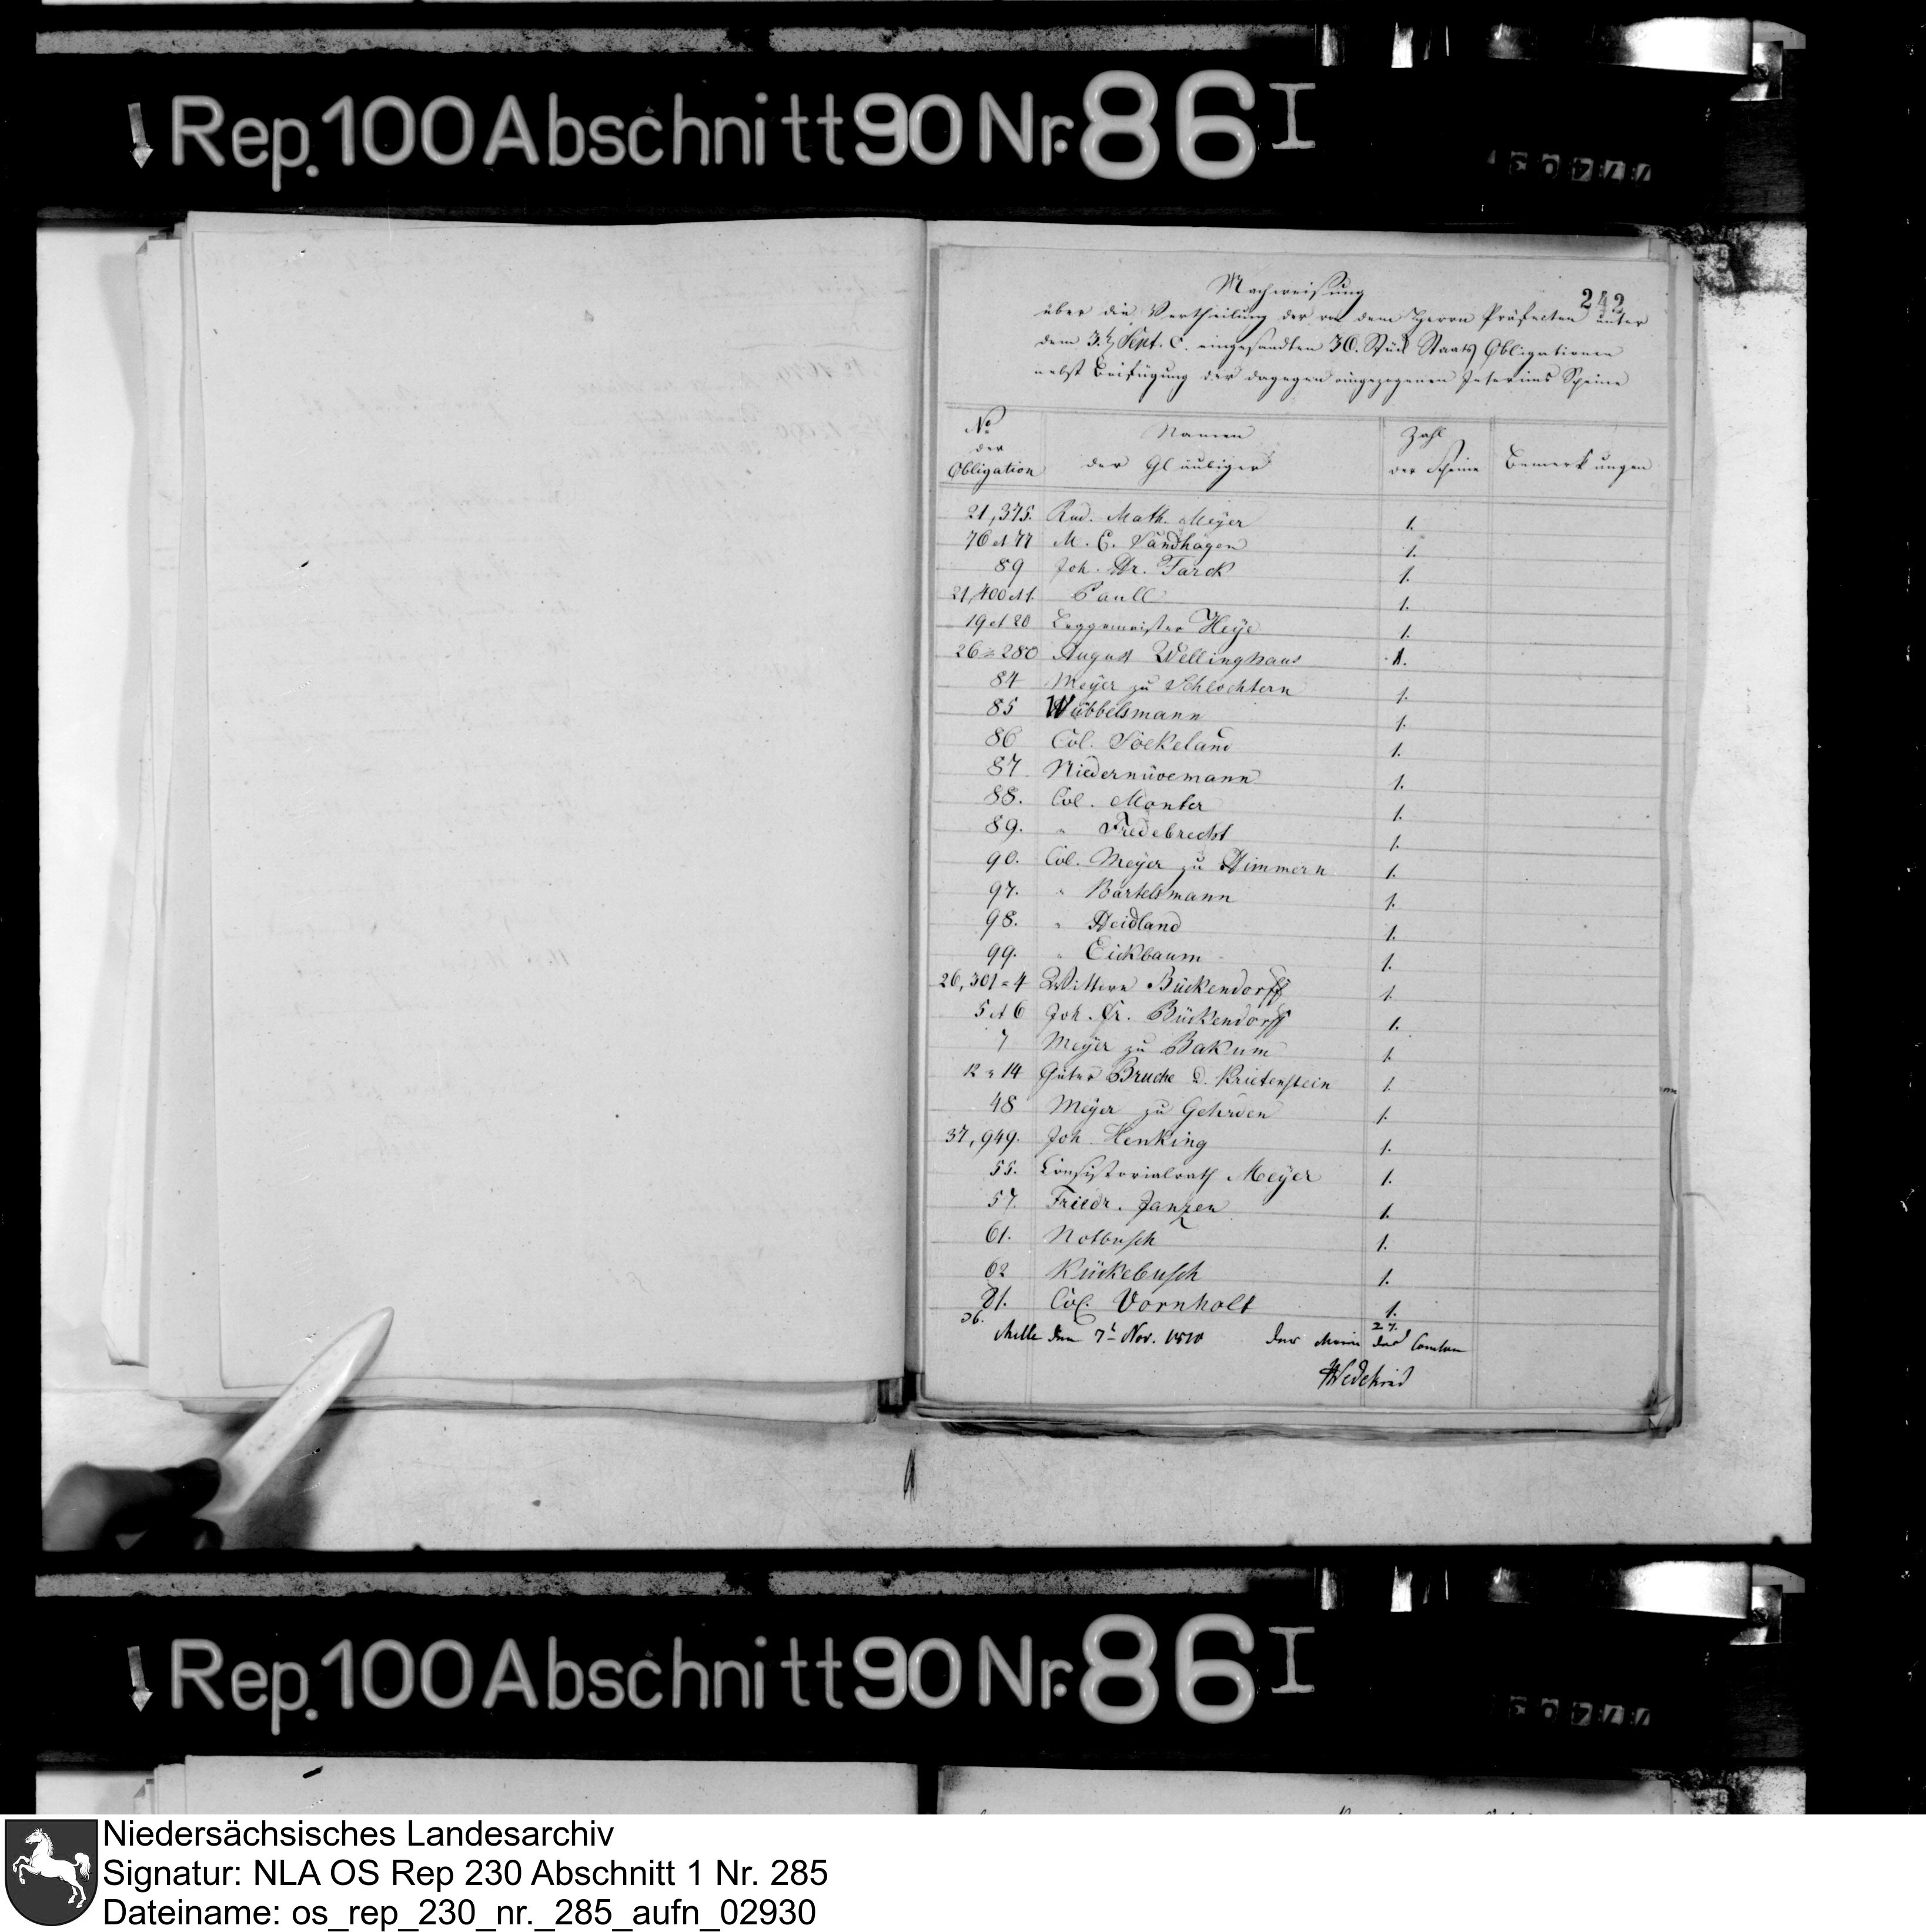 Rep. 100 Abschnitt 90 Nr. 86 I
242
Nachweisung
über die Vertheilung der von dem Herrn Präfecten unter
dem 3. Sept. c. eingesandten 36. Stück Staats Obligationen
nebst Beifügung der dagegen eingezogenen Interims Scheine
No der Obligation
Namen der Gläubiger
Zahl der Scheine
Bemerkungen
21,375. Rud. Math. Meÿer 1.
76 et 77 M. C. Sandhagen 1.
89 Joh. Hr. Tarck 1.
21,400 et 1. Paull 1.
19 et 20 Leggemeister Heÿe 1.
26 = 280 August Wellinghaus 1.
84 Meÿer zu Schlochtern 1.
85 Wübbelsmann 1.
86 Col. Sökeland 1.
87 Niedernüvemann 1.
88. Col. Monter 1.
89. " Fredebrecht 1.
90. Col. Meÿer zu Himmern 1.
97. " Bartelsmann 1.
98. " Heidland 1.
99. " Eickbaum 1.
26,301 = 4 Wittwe Bückendorff 1.
5 et 6 Joh. Fr. Bückendorff 1.
7 Meÿer zu Bakum 1.
12 = 14 Güter Bruche & Krietenstein 1.
48 Meÿer zu Gehrden 1.
37,949. Joh Henking 1.
55. Consistorialrath Meÿer 1.
57. Friedr. Janzen 1.
61. Notbusch 1.
62 Rückebusch 1.
81. Col. Vornholt 1.
36. 27.
Melle den 7t Nov. 1810 Der Maire des Canton
Rep. 100 Abschnitt 90 Nr. 86 I
Niedersächsisches Landesarchiv
Signatur: NLA OS Rep 230 Abschnitt 1 Nr. 285
Dateiname: os_rep_230_nr._285_aufn_02930